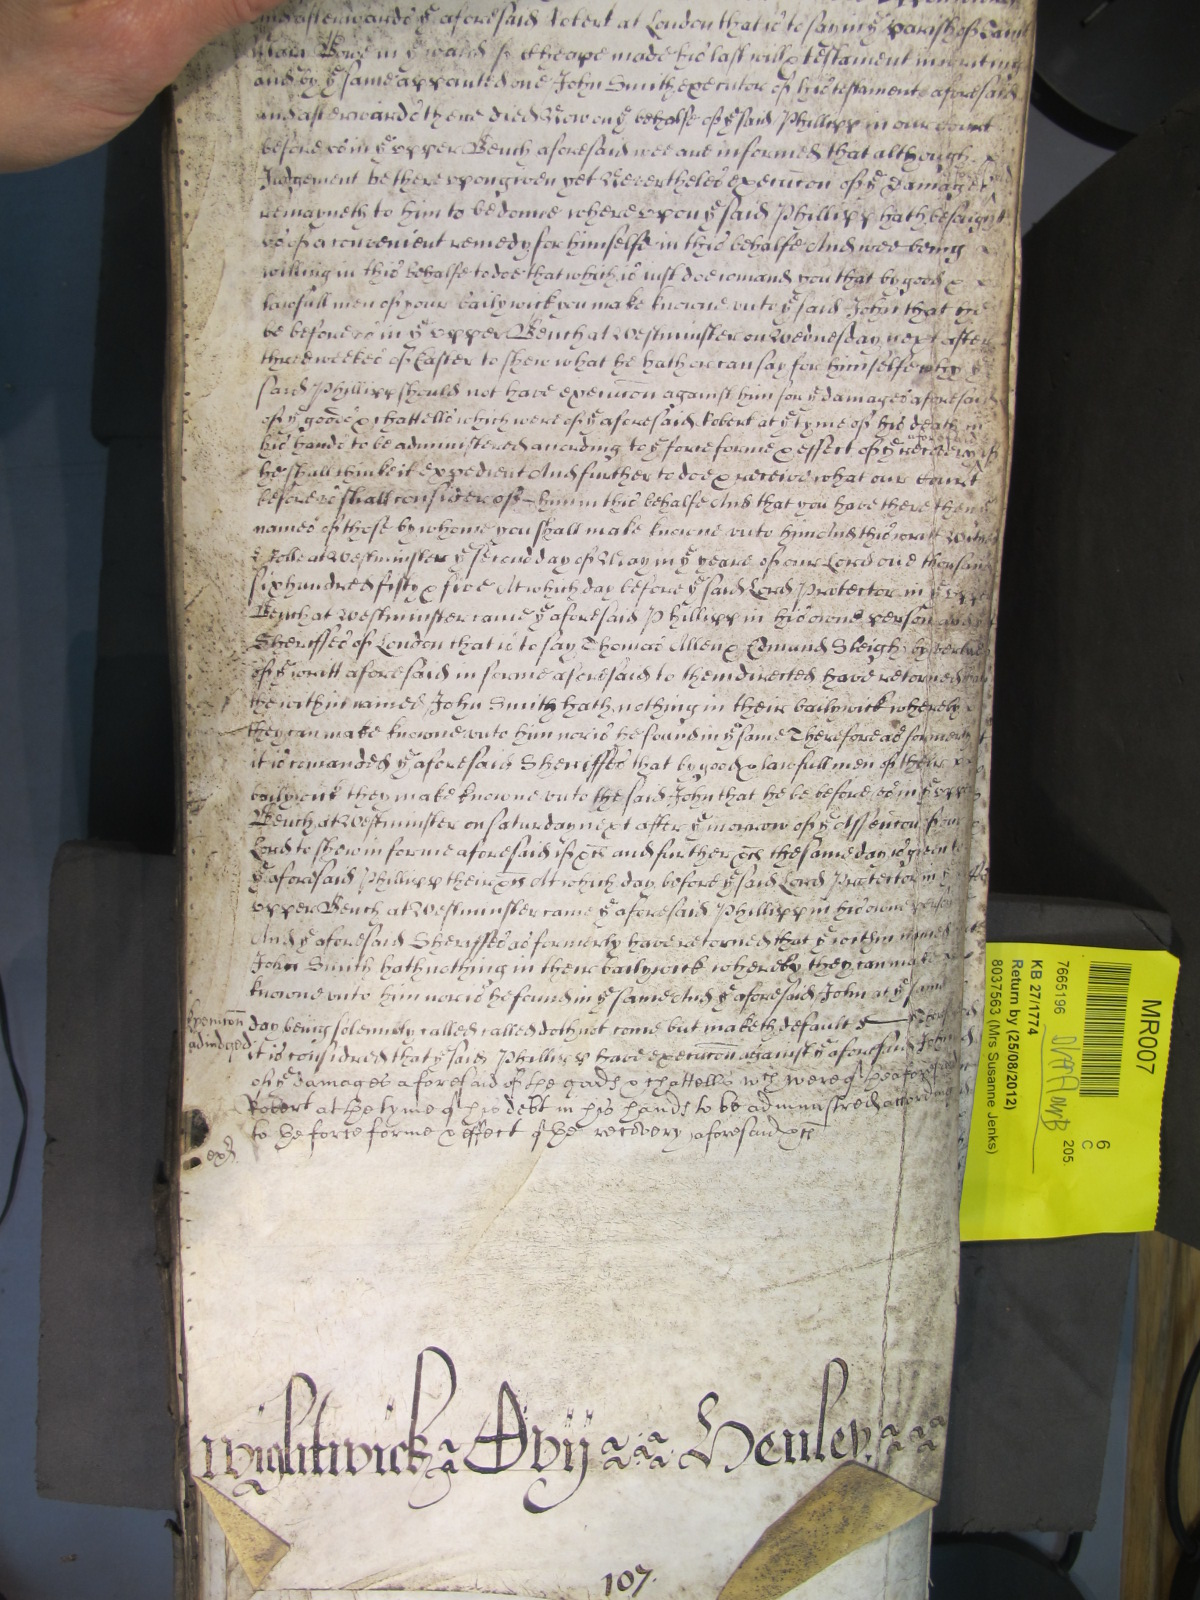 and afterwards yͤ aforesaid Robert at London that is to say in yͤ parish of Saint
Mary Bowe in yͤ ward of Cheape made his last will & testament in writing
and by yͤ same appointed one John Smith executor of his testament aforesaid
and afterwards there died Now on yͤ behalfe of yͤ said Phillipp in our Court
before us in yͤ upper Bench aforesaid wee are informed that although
Judgement be thereupon given yet Neverthelesse execucon of yͤ Damages
remayneth to him to be donne whereupon yͤ said Phillipp hath besought
us of a convenient remedy for himselfe in this behalfe And wee being
willing in this behalfe to doe that which is just doe comand you that by good &
lawfull men of your bailywick you make knowne unto yͤ said John that he
be before us in yͤ upper Bench at Westminster on Wednesday next after
three weekes of Easter to shew what he hath or can say for himselfe why yͤ
said Phillipp should not have execucon against him for yͤ damages aforesaid
of yͤ goods & chattells which were of yͤ aforesaid Robert at yͤ tyme of his death in
his hands to be administered according to yͤ force forme & effect of yͤ recovery if
he shall thinke it expedient And further to doe & receive what our Court
before us shall consider of him in this behalfe And that you have there then yͤ
names of those by whome you shall make knowne unto him And this writt Witnes
H Rolle at Westminster yͤ second day of May in yͤ yeare of our Lord one thousand
six hundred fifty & five At which day before yͤ said Lord Protector in yͤ upper
Bench at Westminster came yͤ aforesaid Phillipp in his owne person And yͤ
Sheriffes of London that is to say Thomas Allen & Edmund Sleigh by vertue
of yͤ writt aforesaid in forme aforesaid to them directed have retorned that
the within named John Smith hath nothing in their bailywick whereby
they can make knowne unto him nor is he found in yͤ same Therefore as formerly
it is comanded yͤ aforesaid Sheriffes that by good & lawfull men of their
bailywick they make knowne unto the said John that he be before us in yͤ upper
Bench at Westminster on Saturday next after yͤ morrow of yͤ Assencon of our
Lord to shew in forme aforesaid if &c and further &c the same day is given to
yͤ aforesaid Phillipp there &c At which day before yͤ said Lord Protector in yͤ
upper Bench at Westminster came yͤ aforesaid Phillipp in his owne person
And yͤ aforesaid Sheriffes as formerly have retorned that yͤ within named
John Smith hath nothing in their bailywick whereby they can make
knowne unto him nor is he found in yͤ same And yͤ aforesaid John at yͤ same
Execucon adiudged
day being solemnly called called doth not come but maketh default Therefore
it is considred that yͤ said Phillipp have execucon against yͤ aforesaid John
of yͤ damages aforesaid of the goods & chattells wch were of the aforesaid
Robert at the tyme of his debt in his hands to be administred according
to the force forme & effect of the recovery aforesaid &c
exr
Wightwick Ovy Henley
107
MR007
6
C
205
7665196
KB 27/1774
Return by (25/08/2012)
8037563 (Mrs Susanne Jenks)